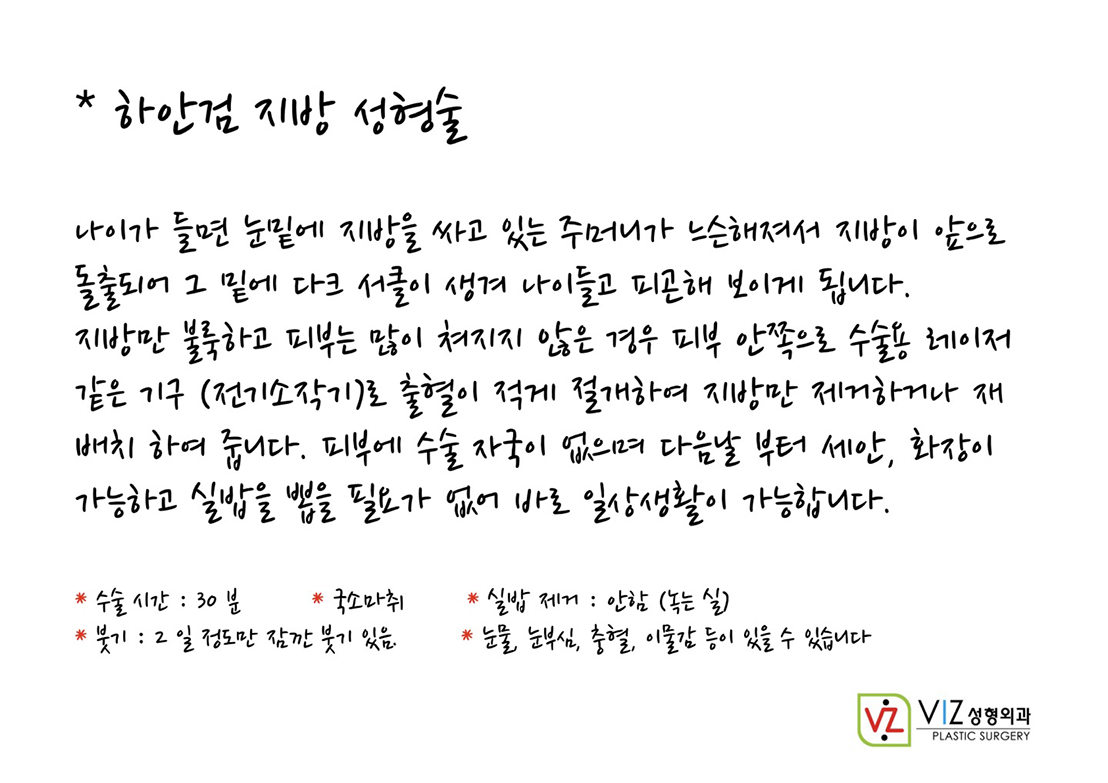 * 하안검 지방 성형술
나이가 들면 눈밑에 지방을 싸고 있는 주머니가 느슨해져서 지방이 앞으로
돌출되어 그 밑에 다크 서클이 생겨 나이들고 피곤해 보이게 됩니다.
지방만 불룩하고 피부는 많이 쳐지지 않은 경우 피부 안쪽으로 수술용 레이저
같은 기구 (전기소작기)로 출혈이 적게 절개하여 지방만 제거하거나 재
배치 하여 줍니다. 피부에 수술 자국이 없으며 다음날 부터 세안, 화장이
가능하고 실밥을 뽑을 필요가 없어 바로 일상생활이 가능합니다.
* 수술 시간 : 30 분 * 국소마취 * 실밥 제거 : 안함 (녹는 실)
* 붓기 : 2 일 정도만 잠깐 붓기 있음. * 눈물, 눈부심, 충혈, 이물감 등이 있을 수 있습니다
VZ VIZ 성형외과
PLASTIC SURGERY